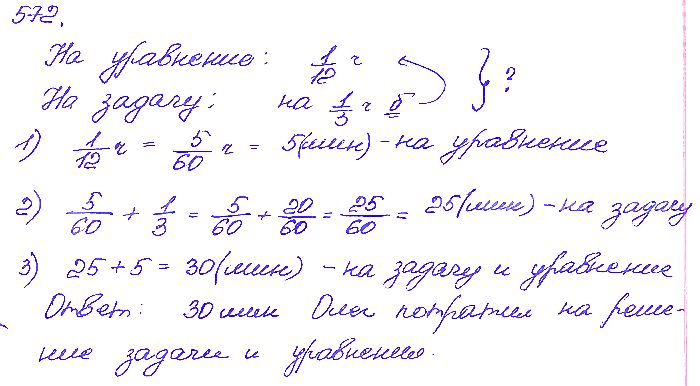 572.
На уравнение: 1/12 ч
На задачу: на 1/3 ч б } ?
1) 1/12 ч = 5/60 ч = 5(мин) - на уравнение
2) 5/60 + 1/3 = 5/60 + 20/60 = 25/60 = 25(мин) - на задачу
3) 25 + 5 = 30(мин) - на задачу и уравнение
Ответ: 30 мин Олег потратил на реше-
ние задачи и уравнения.